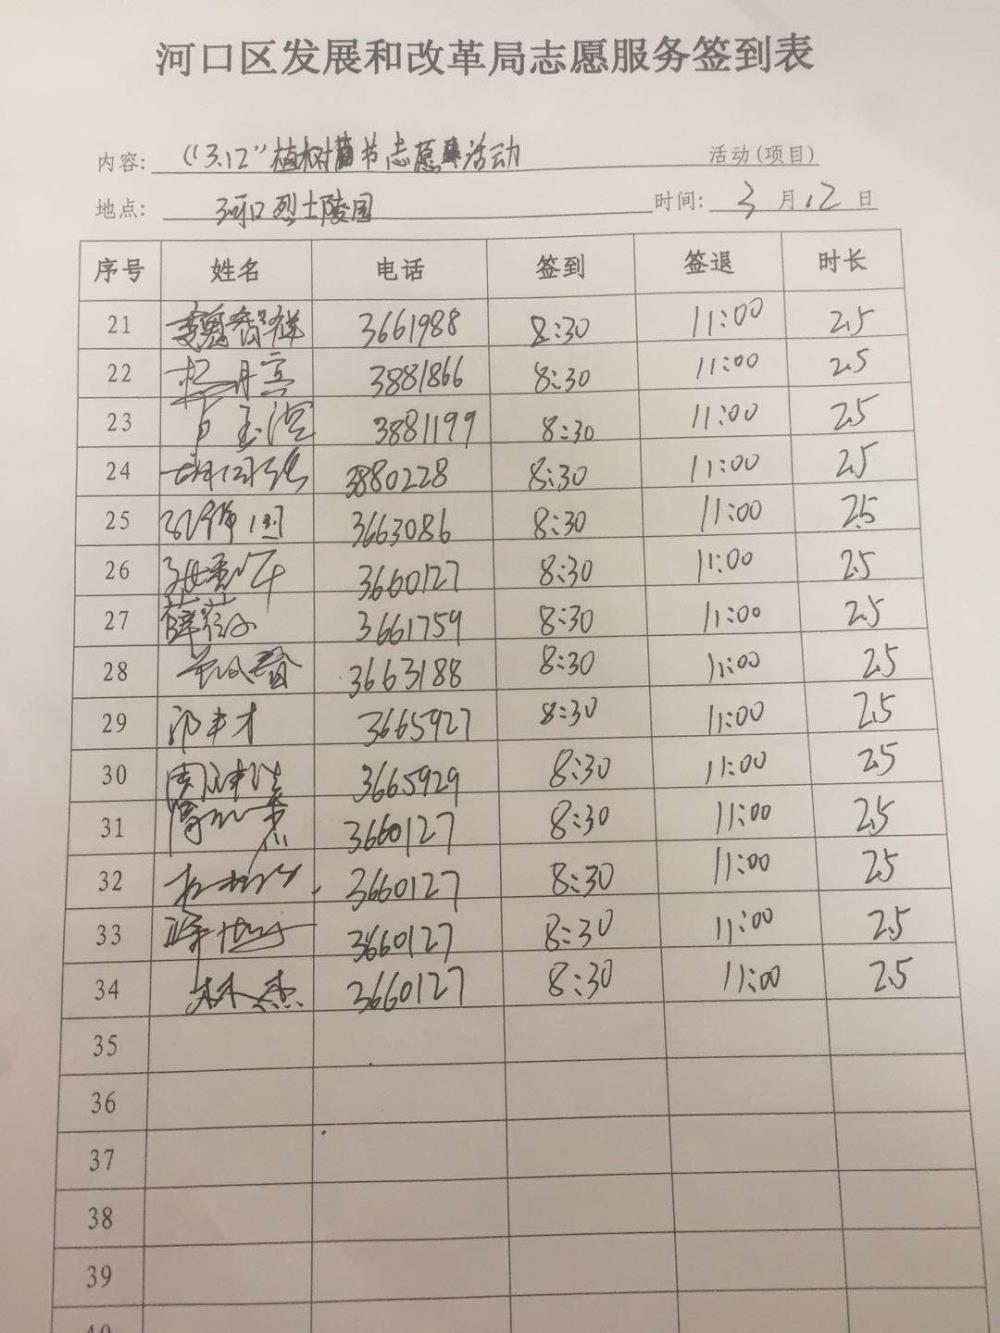 河口区发展和改革局志愿服务签到表
内容: “3.12”植树节志愿活动 活动(项目)
地点: 河口烈士陵园 时间: 3月12日
序号 姓名 电话 签到 签退 时长
21 魏智祥 3661988 8:30 11:00 2.5
22 杨月亮 3881866 8:30 11:00 2.5
23 3881199 8:30 11:00 2.5
24 3880228 8:30 11:00 2.5
25 3663086 8:30 11:00 2.5
26 3660127 8:30 11:00 2.5
27 3661759 8:30 11:00 2.5
28 3663188 8:30 11:00 2.5
29 3665927 8:30 11:00 2.5
30 3665929 8:30 11:00 2.5
31 3660127 8:30 11:00 2.5
32 3660127 8:30 11:00 2.5
33 3660127 8:30 11:00 2.5
34 林杰 3660127 8:30 11:00 2.5
35
36
37
38
39
40